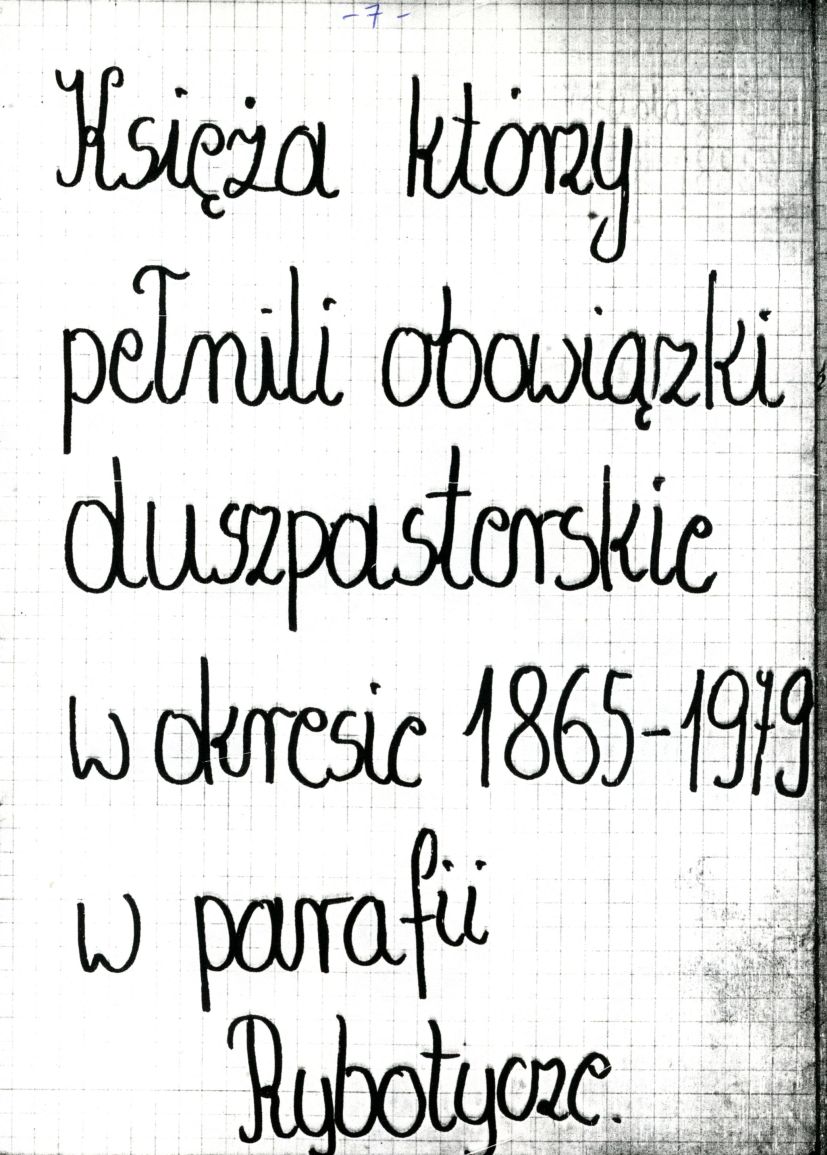 - 7 -
Księża którzy
pełnili obowiązki
duszpasterskie
w okresie 1865-1979
w parafii
Rybotycze.